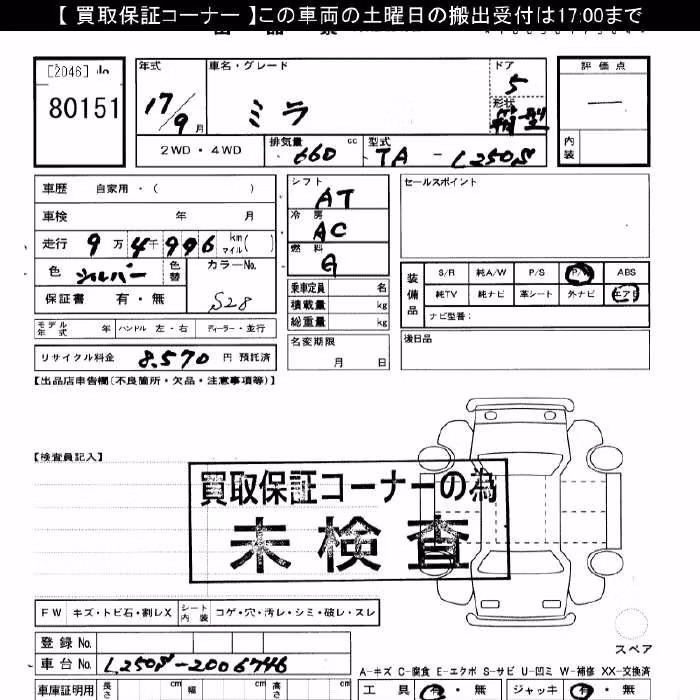 【 買取保証コーナー 】この車両の土曜日の搬出受付は17:00まで
[2046]
80151
年式 17/9月
車名・グレード ミラ
ドア 5
形状 箱型
評価点 —
内装
2WD・4WD
排気量 660 cc
型式 TA - L250S
車歴 自家用・( )
車検 年 月
走行 9万4千996 km マイル( )
色 シルバー 色替
カラーNo. S28
保証書 有・無
シフト AT
冷房 AC
燃料 G
乗車定員 名
積載量 kg
総重量 kg
セールスポイント
装備品 S/R 純A/W P/S P/W ABS
純TV 純ナビ 革シート 外ナビ エアB
ナビ型番:
モデル年式 年 ハンドル 左・右 ディーラー・並行
リサイクル料金 8,570 円 預託済
名変期限 月 日
後日品
【出品店申告欄(不良箇所・欠品・注意事項等)】
【検査員記入】
買取保証コーナーの為
未検査
FW キズ・トビ石・割レX シート内装 コゲ・穴・汚レ・シミ・破レ・スレ
登録 No.
車台 No. L250S-2006746
スペア
A-キズ C-腐食 E-エクボ S-サビ U-凹ミ W-補修 XX-交換済
車庫証明用 長さ cm 幅 cm 高さ cm
工具 有・無 ジャッキ 有・無